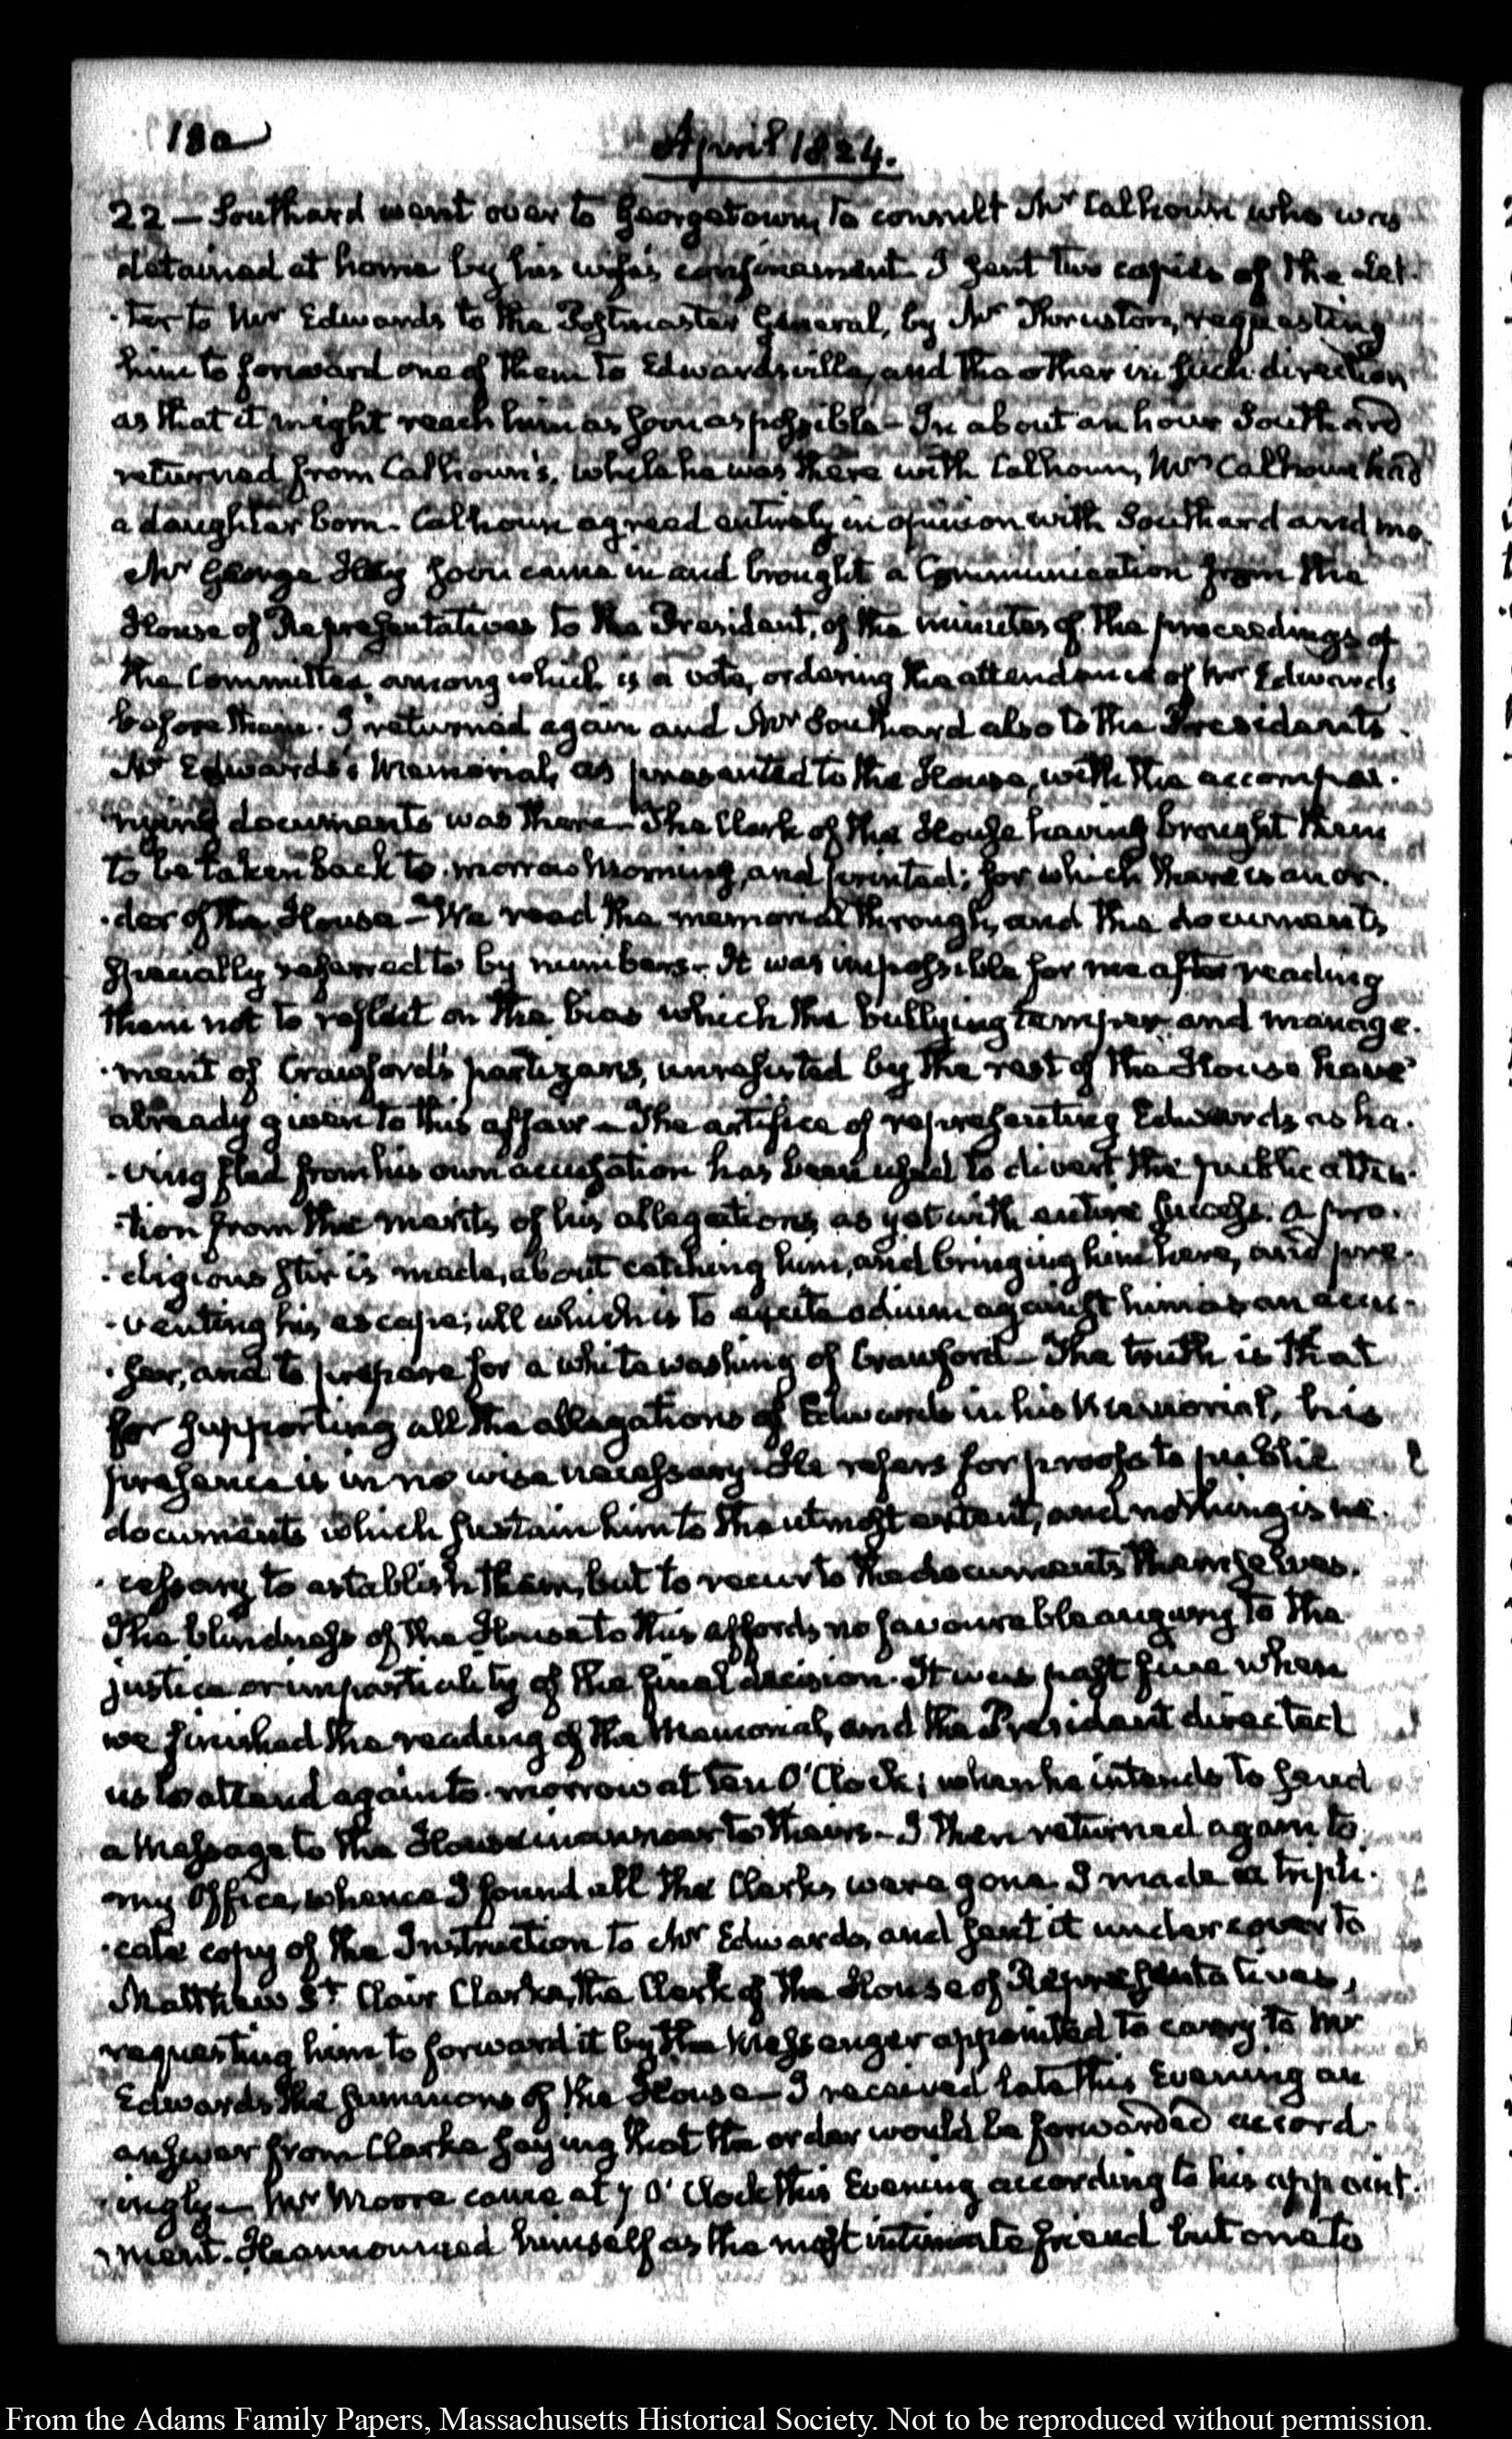 180 April 1824.
22 — Southard went over to Georgetown, to consult Mr Calhoun who was
detained at home by his wife's confinement. I sent two copies of the Let-
-ter to Mr Edwards to the Postmaster General, by Mr Thruston, requesting
him to forward one of them to Edwardsville, and the other in such direction
as that it might reach him as soon as possible — In about an hour Southard
returned from Calhoun's, while he was there with Calhoun, Mrs Calhoun had
a daughter born. Calhoun agreed entirely in opinion with Southard and me.
Mr George Hay soon came in and brought a Communication from the
House of Representatives to the President, of the minutes of the proceedings of
the Committee, among which is a vote, ordering the attendance of Mr Edwards
before them. I returned again and Mr Southard also to the Presidents.
Mr Edwards's Memorial, as presented to the House, with the accompa-
nying documents was there — The Clerk of the House having brought them
to be taken back to-morrow Morning, and printed; for which there is an or-
-der of the House — We read the memorial through, and the documents
specially referred to by numbers — It was impossible for me after reading
them not to reflect on the bias which the bullying temper and manage-
-ment of Crawford's partizans, unresisted by the rest of the House have
already given to this affair — The artifice of representing Edwards as ha-
-ving fled from his own accusation has been used to divert the public atten-
-tion from the merits of his allegations, as yet with entire success. A pro-
-digious stir is made, about catching him, and bringing him here, and pre-
-venting his escape; all which is to excite odium against him as an accu-
-ser, and to prepare for a white washing of Crawford — The truth is that
for supporting all the allegations of Edwards in his Memorial, his
presence is in no wise necessary. He refers for proofs to public
documents which sustain him to the utmost extent, and nothing is ne-
-cessary to establish them, but to recur to the documents themselves.
The blindness of the House to this affords no favourable augury to the
justice or impartiality of the final decision. It was past five when
we finished the reading of the Memorial, and the President directed
us to attend again to-morrow at ten O'Clock; when he intends to send
a Message to the House in answer to theirs — I then returned again to
my Office, whence I found all the Clerks were gone. I made a tripli-
-cate copy of the Instruction to Mr Edwards, and sent it under cover to
Matthew St. Clair Clarke, the Clerk of the House of Representatives,
requesting him to forward it by the Messenger appointed to carry to Mr
Edwards the summons of the House — I received late this Evening an
answer from Clarke saying that the order would be forwarded accord-
-ingly — Mr Moore came at 7 O'Clock this Evening according to his appoint-
-ment. He announced himself as the most intimate friend but one to
From the Adams Family Papers, Massachusetts Historical Society. Not to be reproduced without permission.